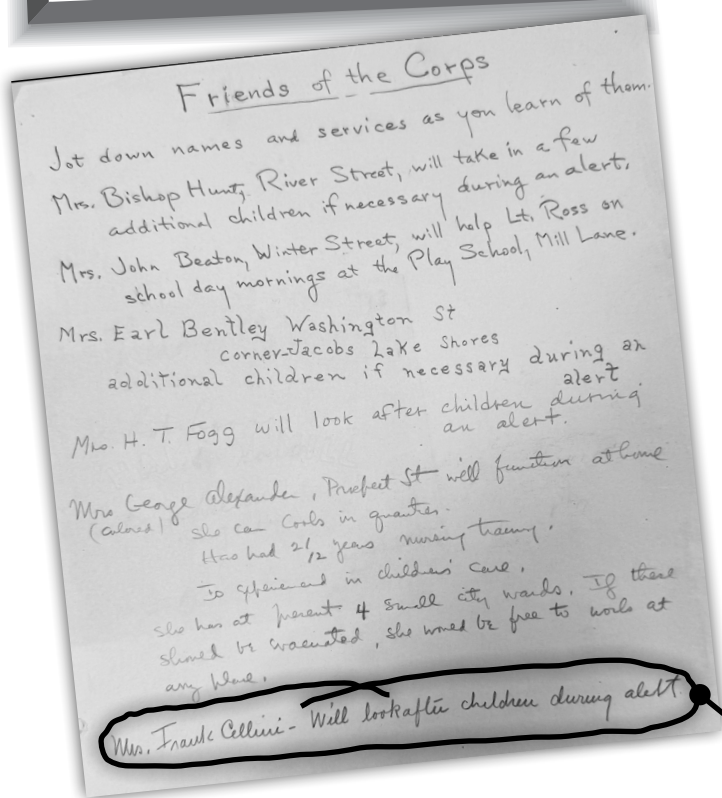 Friends of the Corps
Jot down names and services as you learn of them.
Mrs. Bishop Hunt, River Street, will take in a few
additional children if necessary during an alert.
Mrs. John Beaton, Winter Street, will help Lt. Ross on
school day mornings at the Play School, Mill Lane.
Mrs. Earl Bentley Washington St
corner-Jacobs Lake Shores
additional children if necessary during an
alert
Mrs. H. T. Fogg will look after children during
an alert.
Mrs George Alexander, Prospect St will function at home
(colored) she can cook in quantities.
Has had 2 1/2 years nursing training.
Is experienced in childrens' care.
She has at present 4 small city wards. If these
should be evacuated, she would be free to work at
any place.
Mrs. Frank Cellini - Will look after children during alert.